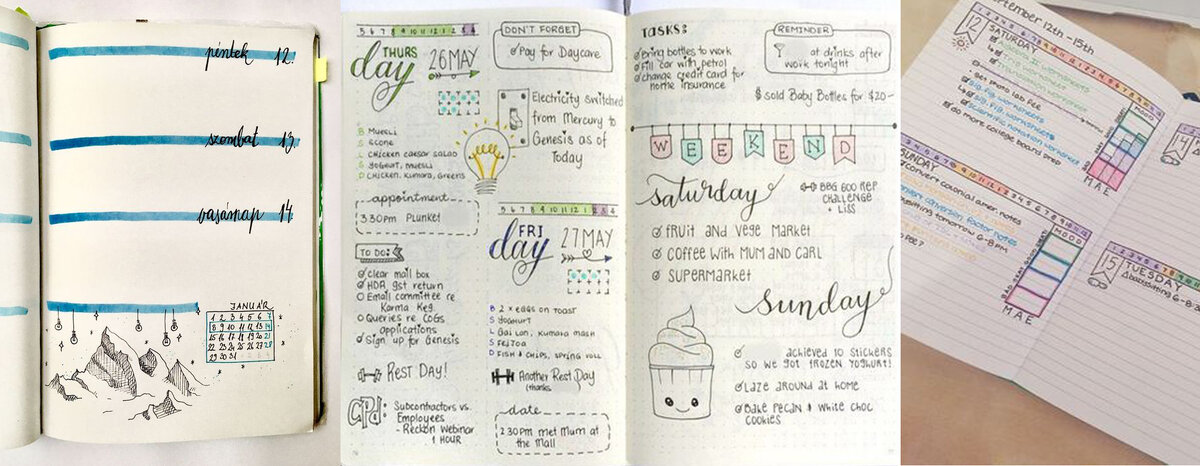 péntek 12.
szombat 13.
vasárnap 14.
JANUÁR
1 2 3 4 5 6 7
8 9 10 11 12 13 14
15 16 17 18 19 20 21
22 23 24 25 26 27 28
29 30 31
5 6 7 8 9 10 11 12 1 2 3 4
THURS
day
26 MAY
B MUESLI
S SCONE
L CHICKEN CAESAR SALAD
S YOGHURT, MUESLI
D CHICKEN, KUMARA, GREENS
appointment
3:30PM Plunket
TO DO:
clear mail box
HDR gst return
Email committee re
Karma Keg
Queries re COGS
applications
Sign up for Genesis
REST DAY!
CPD:
Subcontractors vs.
Employees
- Reckon Webinar
1 HOUR
DON'T FORGET
Pay for Daycare
Electricity switched
from Mercury to
Genesis as of
Today
5 6 7 8 9 10 11 12 1 2 3 4
FRI
day
27 MAY
B 2 x EGGS ON TOAST
S YOGHURT
L Bai Lan, KUMARA MASH
S FEIJOA
D FISH & CHIPS, SPRING ROLL
Another Rest Day
(thanks
date
2:30PM met Mum at
the Mall
TASKS:
Bring bottles to work
Fill car with petrol
change credit card for
home insurance
REMINDER
at drinks after
work tonight
$ sold Baby Bottles for $20-
WEEKEND
saturday
BBG 600 REP
CHALLENGE
+ LISS
FRUIT AND VEGE MARKET
COFFEE WITH MUM AND CARL
SUPERMARKET
sunday
achieved 10 STICKERS
SO WE GOT FROZEN YOGHURT!
LAZE AROUND AT HOME
BAKE PECAN & WHITE CHOC
COOKIES
September 12th - 15th
12
SATURDAY
photo lab fee
sig. fig. worksheets
scientific notation worksheet
do more college board prep
MOOD
M A E
SUNDAY
convert colonial amer. notes
conversion footer notes
babysitting tomorrow 6-8pm
MOOD
M A E
14
15
TUESDAY
babysitting 6-8